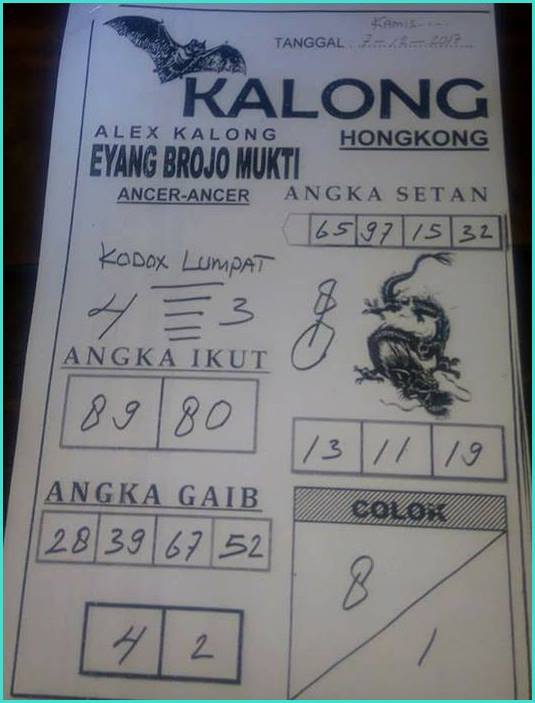 Kamis....
TANGGAL : 7-12-2017
KALONG
ALEX KALONG
HONGKONG
EYANG BROJO MUKTI
ANCER-ANCER
ANGKA SETAN
65 97 15 32
KODOX LUMPAT
4 3
8
0
ANGKA IKUT
89 80
13 11 19
ANGKA GAIB
28 39 67 52
COLOK
8
1
4 2